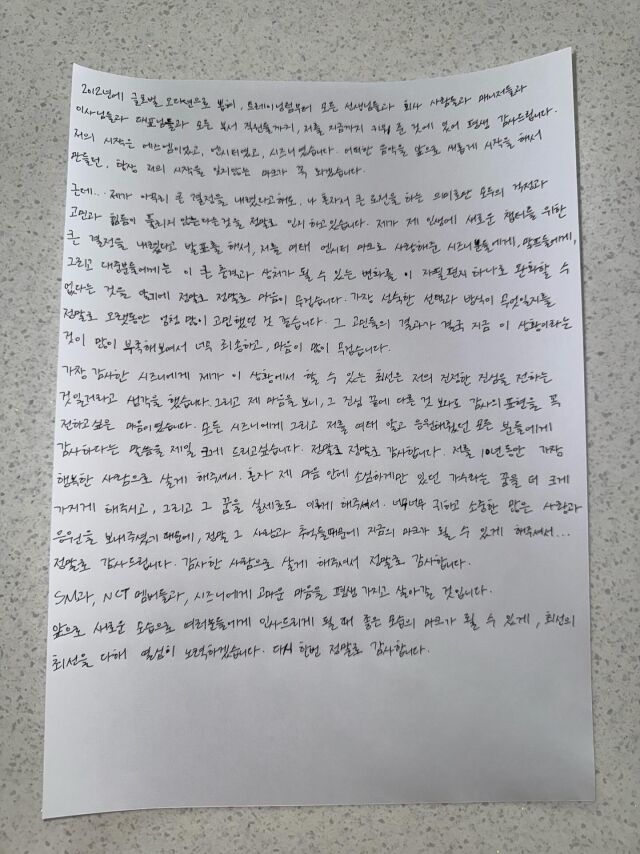 2012년에 글로벌 오디션으로 뽑혀, 트레이닝팀부터 모든 선생님들과 회사 사람들과 매니저들과
이사님들과 대표님들과 모든 부서 직원들까지, 저를 지금까지 키워 준 것에 있어 평생 감사드립니다.
저의 시작은 에스엠이었고, 엔시티였고, 시즈니였습니다. 어떠한 음악을 앞으로 새롭게 시작을 해서
만들던, 항상 저의 시작을 잊지않는 마크가 꼭 되겠습니다.
근데... 제가 아무리 큰 결정을 내렸다고해도, 나 혼자서 큰 도전을 하는 의미로만 모두의 걱정과
고민과 힘듦이 풀리지 않는다는것을 정말로 인지하고있습니다. 제가 제 인생에 새로운 챕터을 위한
큰 결정을 내렸다고 발표를 해서, 저를 여태 엔시티 마크로 사랑해준 시즈니분들에게, 팜프들에게,
그리고 대중분들에게는 이 큰 충격과 상처가 될 수 있는 변화를 이 자필편지 하나로 완화할 수
없다는 것을 알기에 정말로 정말로 마음이 무겁습니다. 가장 성숙한 선택과 방식이 무엇일지를
정말로 오랫동안 엄청 많이 고민했던 것 같습니다. 그 고민들의 결과가 결국 지금 이 상황이라는
것이 많이 부족해보여서 너무 죄송하고, 마음이 많이 무겁습니다.
가장 감사한 시즈니에게 제가 이 상황에서 할 수 있는 최선은 저의 진정한 진심을 전하는
것일거라고 생각을 했습니다. 그리고 제 마음을 보니, 그 진심 끝에 다른 것 보다도 감사의 표현을 꼭
전하고 싶은 마음이였습니다. 모든 시즈니에게 그리고 저를 여태 알고 응원해줬던 모든 분들에게
감사하다는 말씀을 제일 크게 드리고싶습니다. 정말로 정말로 감사합니다. 저를 10년동안 가장
행복한 사람으로 살게 해주셔서. 혼자 제 마음 안에 소심하게만 있던 가수라는 꿈을 더 크게
가지게 해주시고, 그리고 그 꿈을 실제로도 이뤄게 해주셔서. 너무너무 귀하고 소중한 많은 사랑과
응원을 보내주셨기 때문에, 정말 그 사랑과 추억들때문에 지금의 마크가 될 수 있게 해주셔서...
정말로 감사드립니다. 감사한 사람으로 살게 해주셔서 정말로 감사합니다.
SM과, NCT 멤버들과, 시즈니에게 고마운 마음을 평생 가지고 살아갈 것입니다.
앞으로 새로운 모습으로 여러분들에게 인사드리게 될 때 좋은 모습의 마크가 될 수 있게, 최선의
최선을 다해 열심히 노력하겠습니다. 다시 한번 정말로 감사합니다.